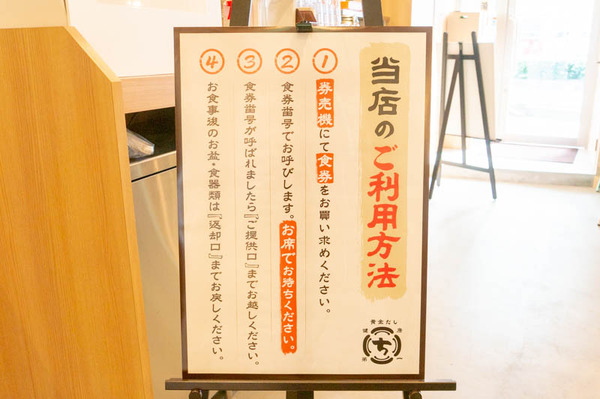 当店のご利用方法
①券売機にて食券をお買い求めください。
②食券番号でお呼びします。お席でお待ちください。
③食券番号が呼ばれましたら『ご提供口』までお越しください。
④お食事後のお盆・食器類は『返却口』までお戻しください。
黄金だし
健康
第一
ち